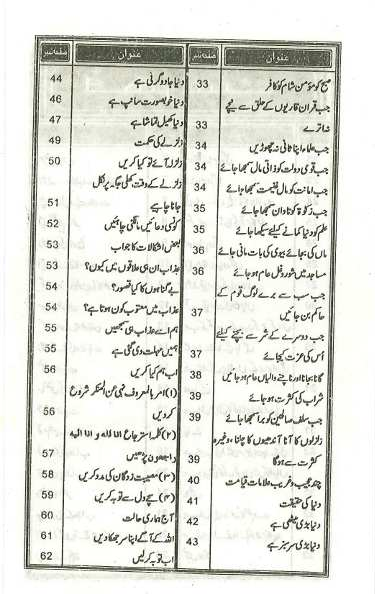 عنوان صفحہ نمبر
صبح کو مؤمن شام کو کافر 33
جب قرآن قاریوں کے حلق سے نیچے
نہ اترے 33
جب علماء اپنا ثانی نہ چھوڑیں 34
جب قومی دولت کو ذاتی مال سمجھا جائے 34
جب امانت کو مال غنیمت سمجھا جائے 34
جب زکوٰۃ کو تاوان سمجھا جائے 35
علم کو دنیا کمانے کیلئے سیکھا جائے 35
ماں کی بجائے بیوی کی بات مانی جائے 36
مساجد میں شور و غل عام ہو جائے 36
جب سب سے برے لوگ قوم کے
حاکم بن جائیں 37
جب دوسرے کے شر سے بچنے کیلئے
اُس کی عزت کیجائے 37
گانا بجانا اور ناچنے والیاں عام ہو جائیں 38
شراب کی کثرت ہو جائے 39
جب سلف صالحین کو برا سمجھا جائے 39
زلزلوں کا آنا آندھیوں کا چلنا، وغیرہ
کثرت سے ہوگا 39
چند عجیب و غریب علامات قیامت 40
دنیا کی حقیقت 41
دنیا بڑی میٹھی ہے 42
دنیا بڑی سرسبز ہے 43
عنوان صفحہ نمبر
دنیا جادوگرنی ہے 44
دنیا خوبصورت سانپ ہے 46
دنیا کھیل تماشا ہے 47
زلزلے کی حکمت 49
زلزلہ آئے تو کیا کریں 50
زلزلے کے وقت کھلی جگہ پر نکل
جانا چاہیے 51
کونسی دعائیں مانگنی چاہئیں 52
بعض اشکالات کا جواب 53
عذاب ان ہی علاقوں میں کیوں؟ 53
بے گناہوں کا کیا قصور؟ 54
عذاب میں معتوب کون ہوتا ہے؟ 54
ہم اسے عذاب ہی سمجھیں 55
ہمیں مہلت دی گئی ہے 55
اب ہم کیا کریں 56
(۱) امر بالمعروف نہی عن المنکر شروع
کر دیں 56
(۲) کلمہ استرجاع انا للہ و انا الیہ
راجعون پڑھیں 57
(۳) مصیبت زدگان کی مدد کریں 58
(۴) سچے دل سے توبہ کریں 59
آج ہماری حالت 60
اللہ کے آگے اپنا سر جھکا دیں 61
اب توبہ کر لیں 62